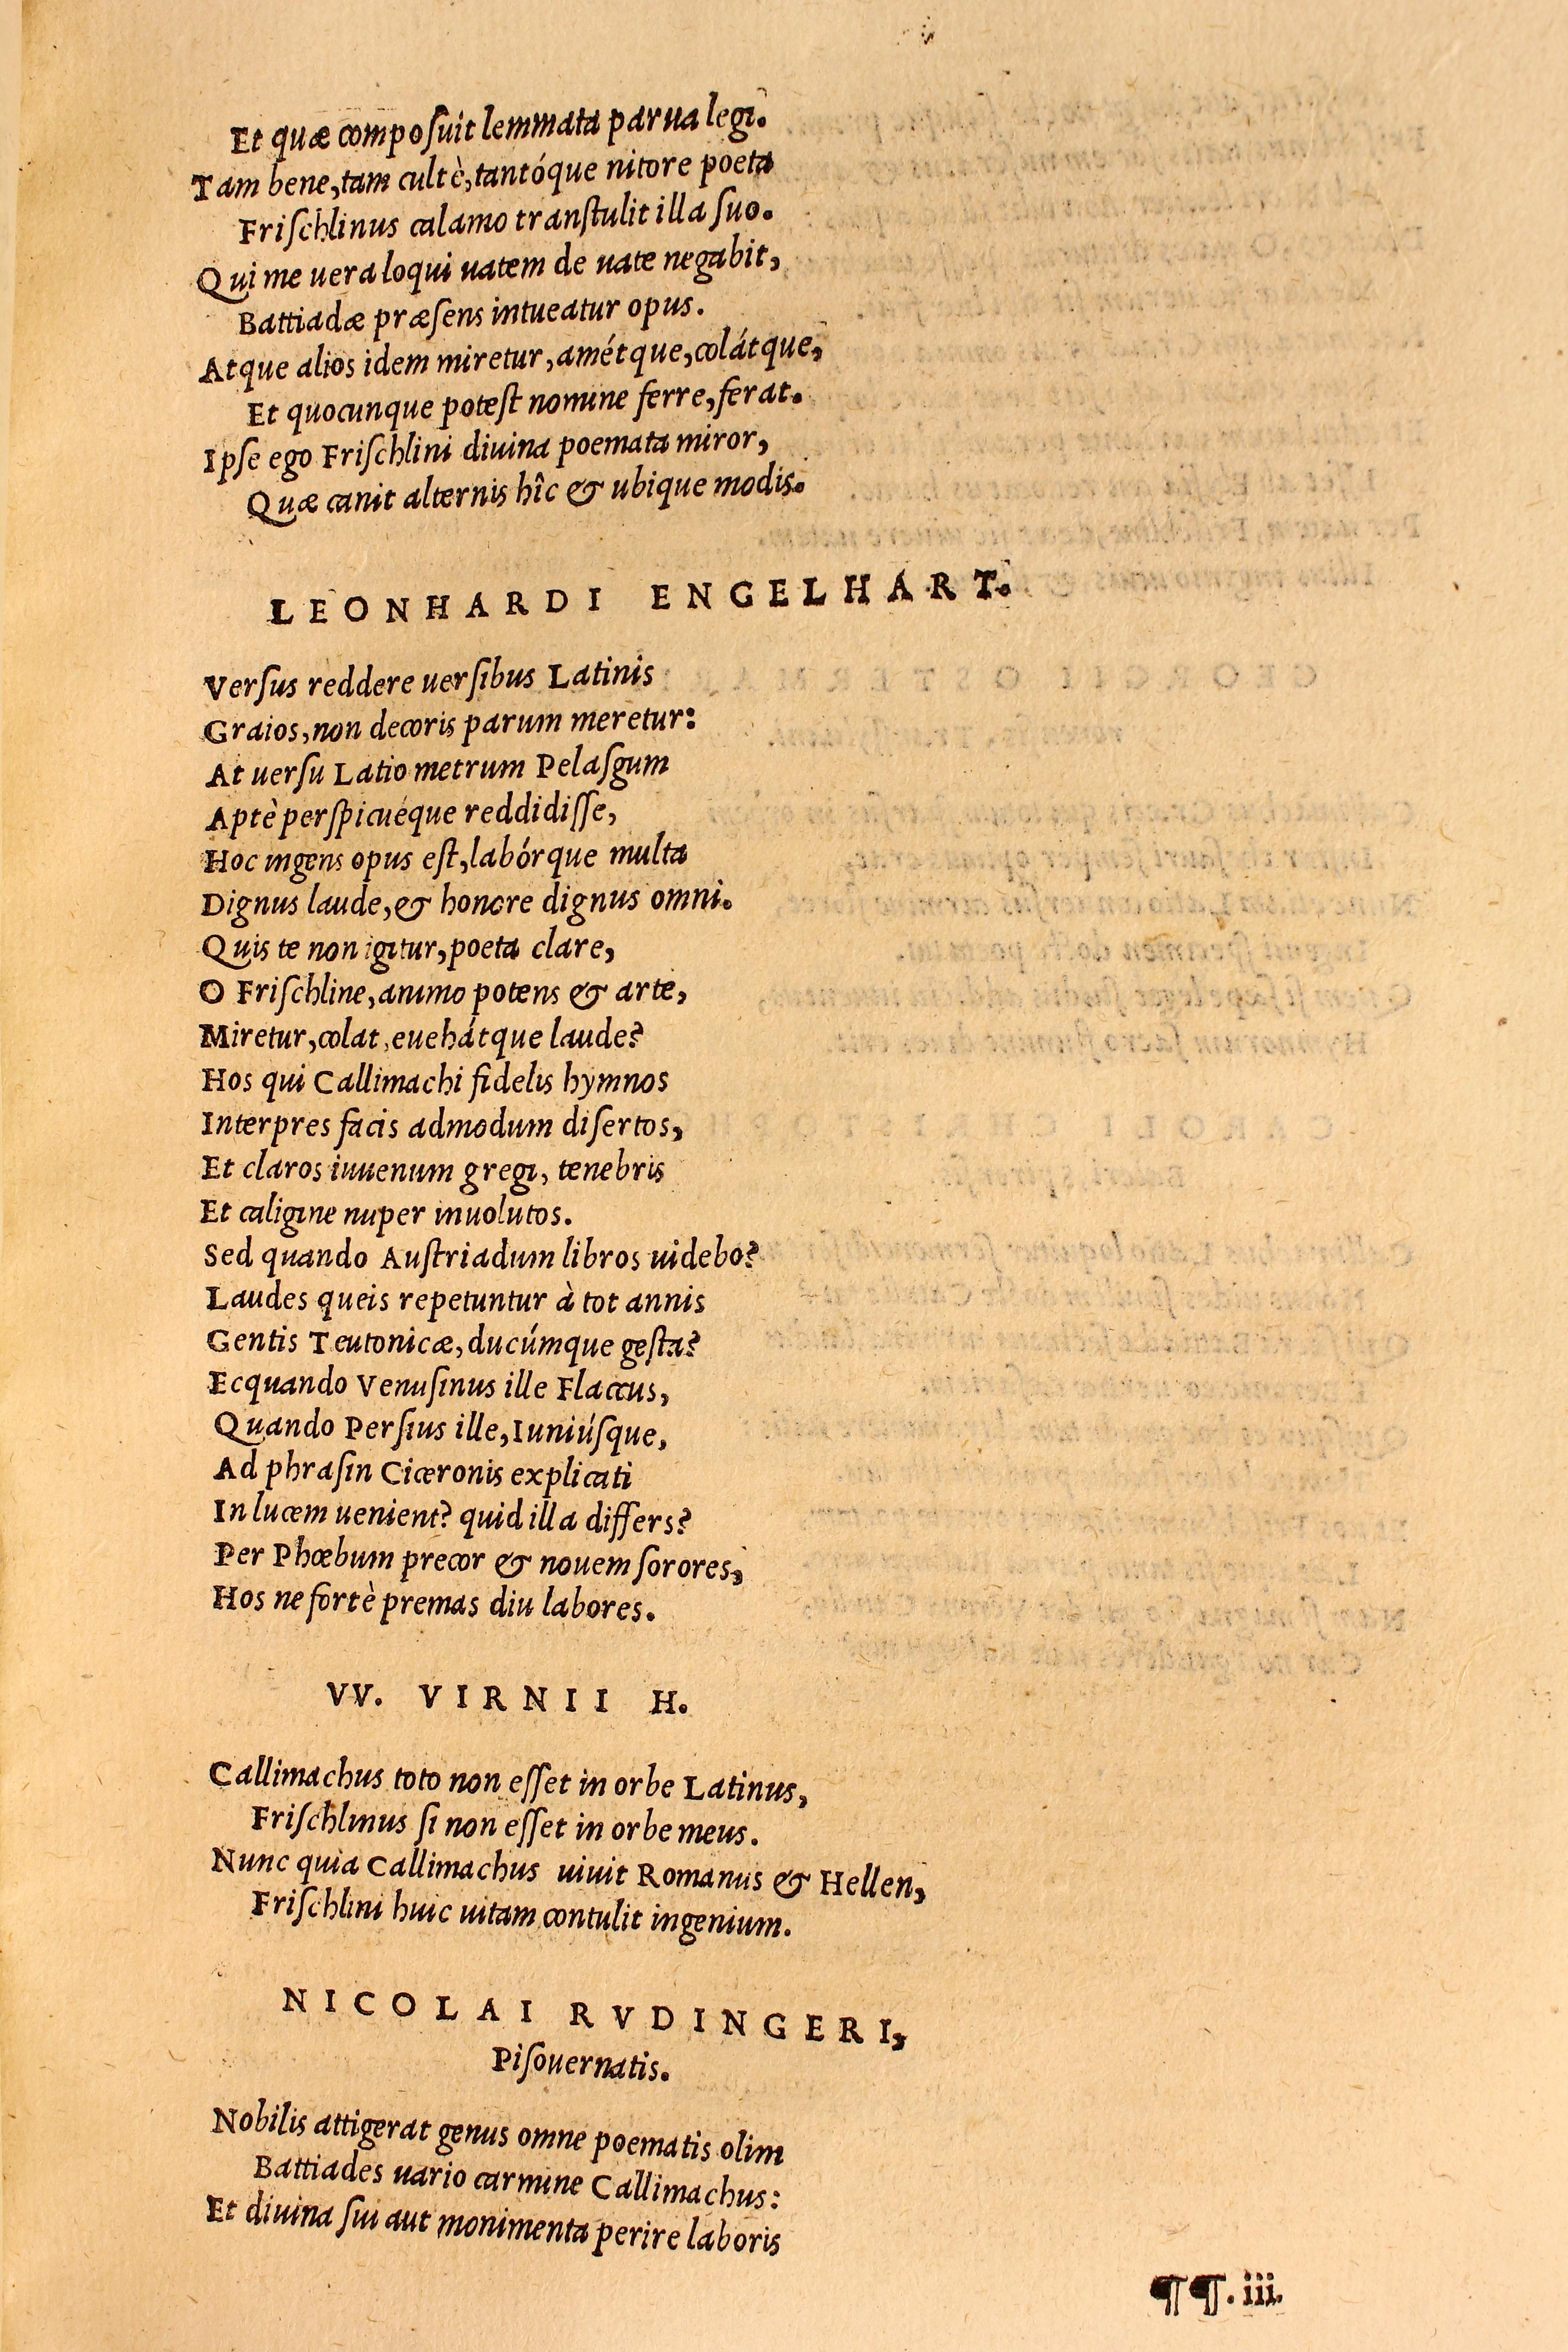 Et quæ compoſuit lemmata parua legi.
Tam bene, tam cultè, tantóque nitore poeta
Friſchlinus calamo tranſtulit illa ſuo.
Qui me uera loqui uatem de uate negabit,
Battiadæ præſens intueatur opus.
Atque alios idem miretur, amétque, colátque,
Et quocunque poteſt nomine ferre, ferat.
Ipſe ego Friſchlini diuina poemata miror,
Quæ canit alternis hîc & ubique modis.
LEONHARDI ENGELHART.
Verſus reddere uerſibus Latinis
Graios, non decoris parum meretur:
At uerſu Latio metrum Pelaſgum
Aptè perſpicuéque reddidiſſe,
Hoc ingens opus eſt, labórque multa
Dignus laude, & honore dignus omni.
Quis te non igitur, poeta clare,
O Friſchline, animo potens & arte,
Miretur, colat, euehátque laude?
Hos qui Callimachi fidelis hymnos
Interpres facis admodum diſertos,
Et claros iuuenum gregi, tenebris
Et caligine nuper inuolutos.
Sed quando Auſtriadum libros uidebo?
Laudes queis repetuntur à tot annis
Gentis Teutonicæ, ducúmque geſta?
Ecquando Venuſinus ille Flaccus,
Quando Perſius ille, Iuniúſque,
Ad phraſin Ciceronis explicati
In lucem uenient? quid illa differs?
Per Phœbum precor & nouem ſorores,
Hos ne fortè premas diu labores.
VV. VIRNII H.
Callimachus toto non eſſet in orbe Latinus,
Friſchlinus ſi non eſſet in orbe meus.
Nunc quia Callimachus uiuit Romanus & Hellen,
Friſchlini huic uitam contulit ingenium.
NICOLAI RVDINGERI,
Piſouernatis.
Nobilis attigerat genus omne poematis olim
Battiades uario carmine Callimachus:
Et diuina ſui aut monimenta perire laboris
¶¶.iii.